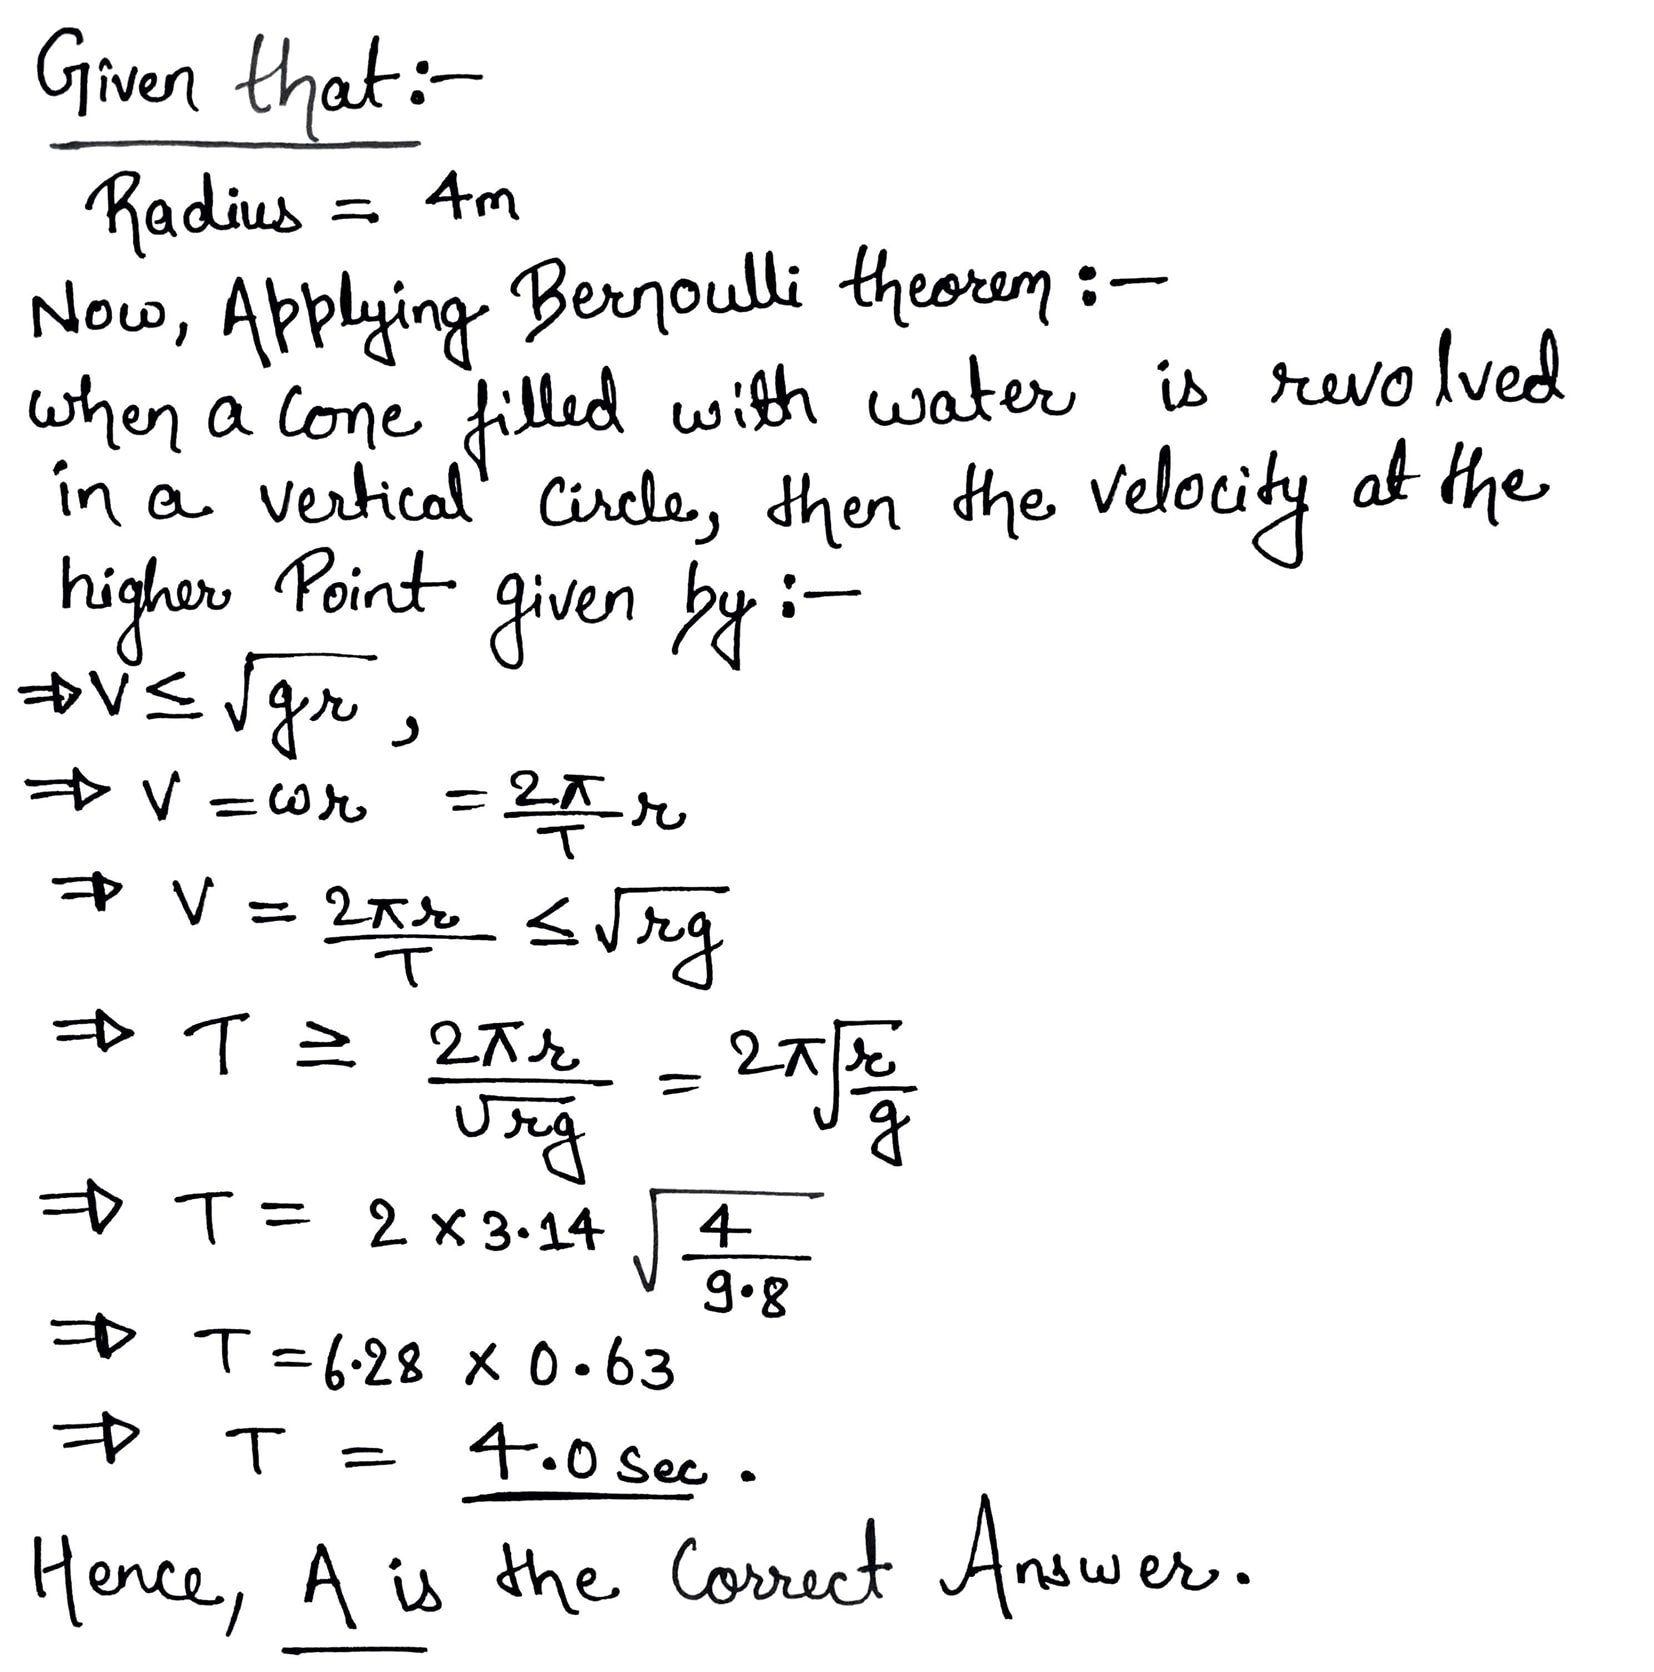 Given that:-
Radius = 4m
Now, Applying Bernoulli theorem:-
when a cone filled with water is revolved
in a vertical circle, then the velocity at the
higher Point given by:-
⇒ V ≤ √gr ,
⇒ V = ωr = 2π/T r
⇒ V = 2πr/T ≤ √rg
⇒ T ≥ 2πr/√rg = 2π√(r/g)
⇒ T = 2 × 3.14 √(4/9.8)
⇒ T = 6.28 × 0.63
⇒ T = 4.0 sec.
Hence, A is the Correct Answer.